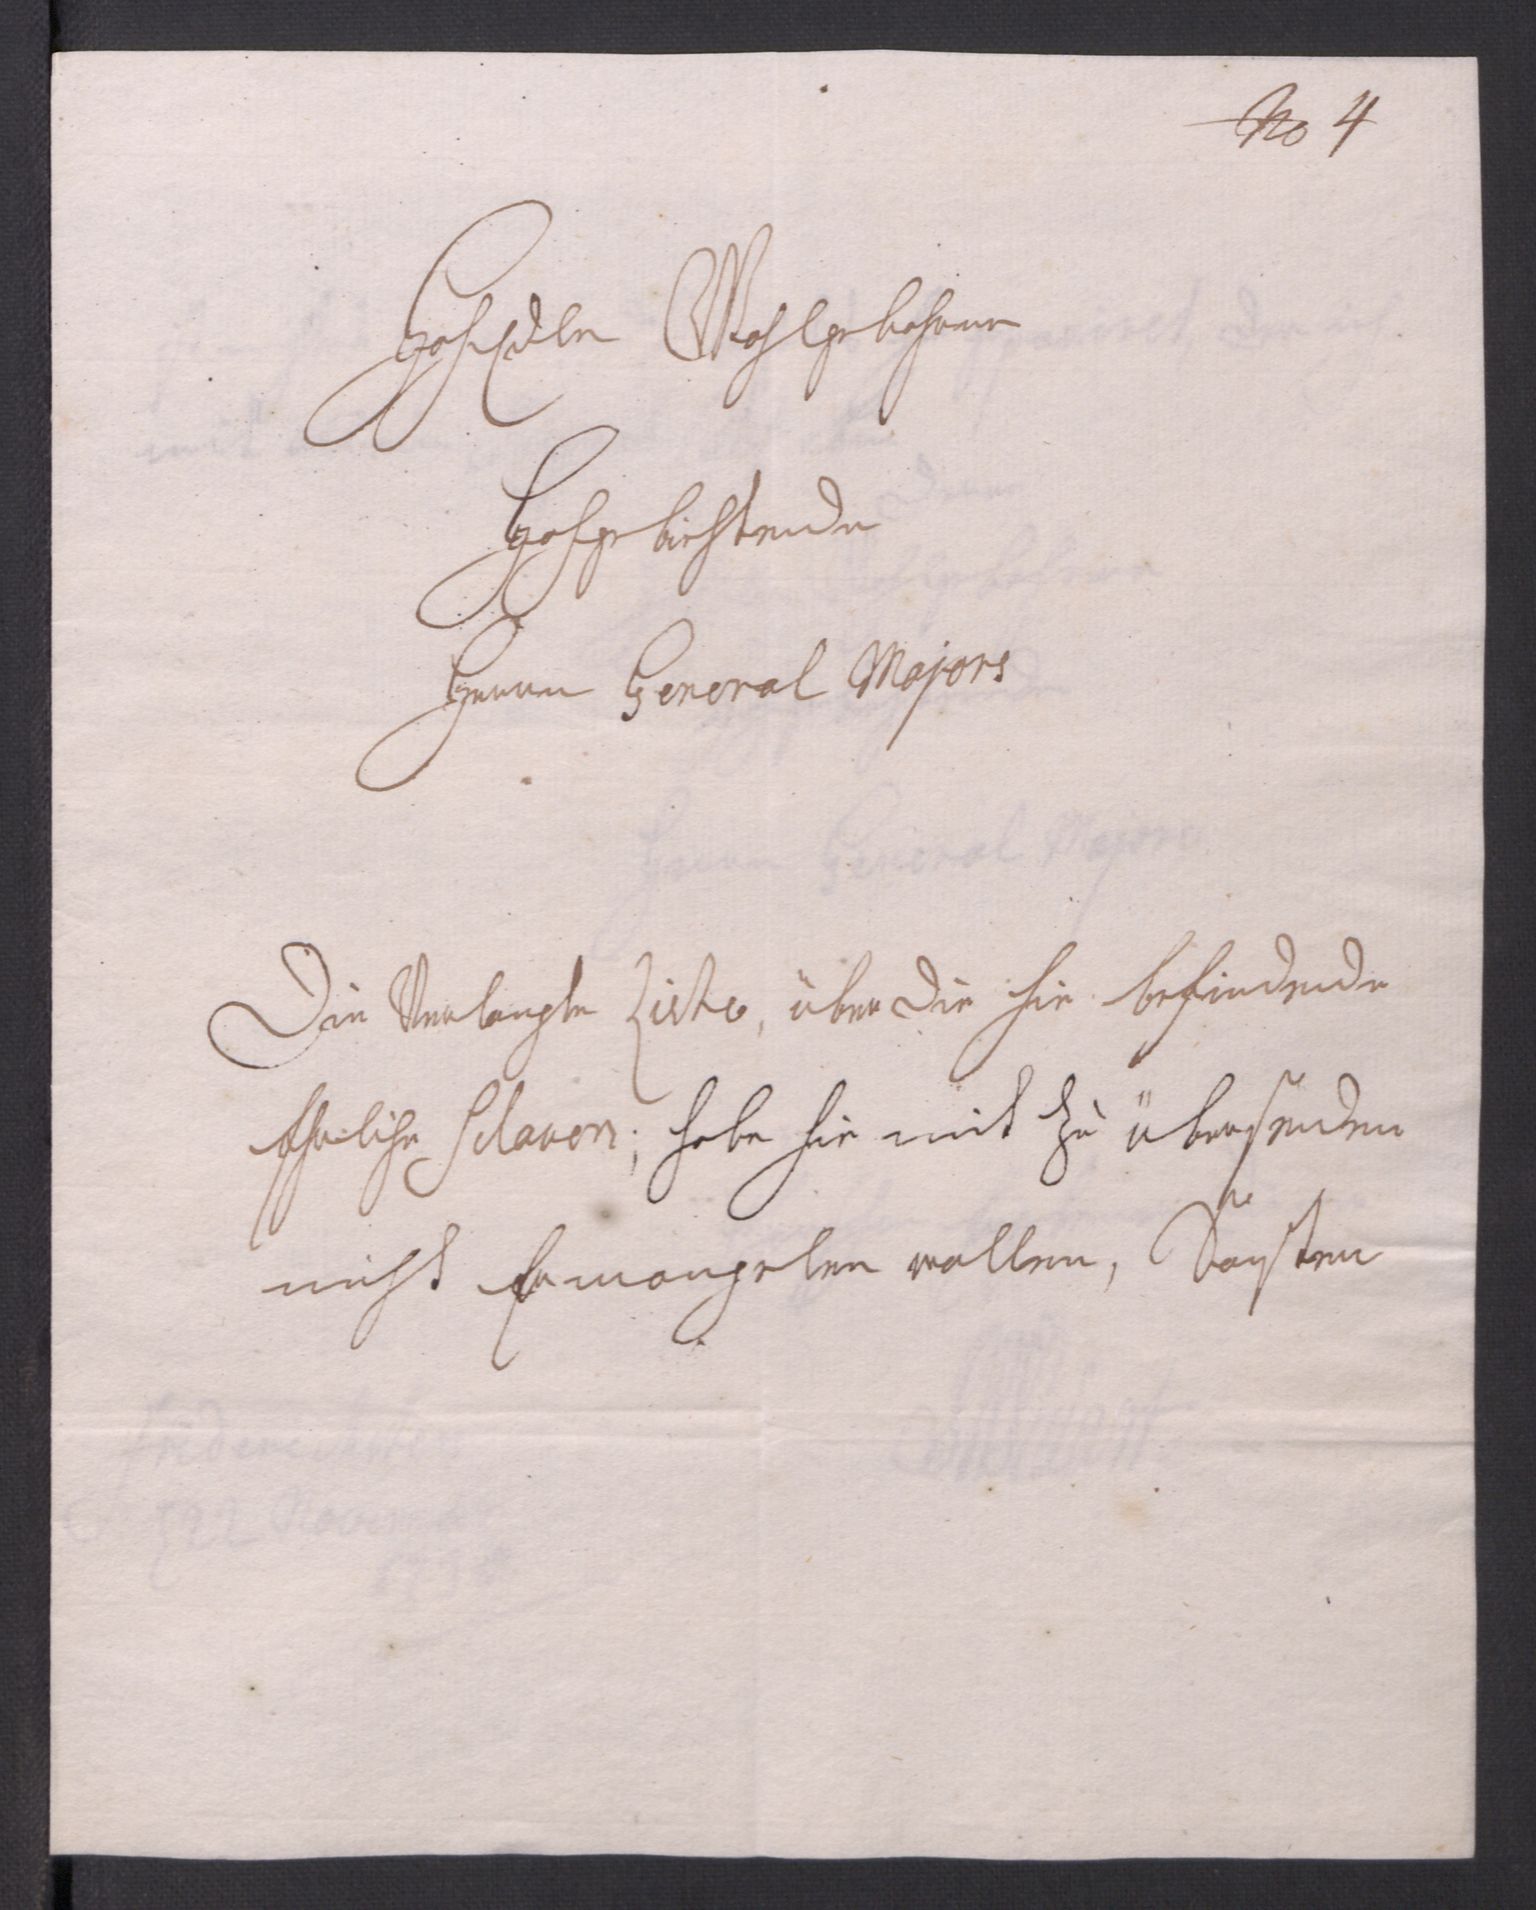 No 4
HochEdler Wohlgebohrner
Hochgebiehtender
Herrn General Majors
Die Verlangte Liste, über die hie befindende
Ehrliche Sclaven; habe hie mit zu übersenden
nicht Ermangelen wollen,